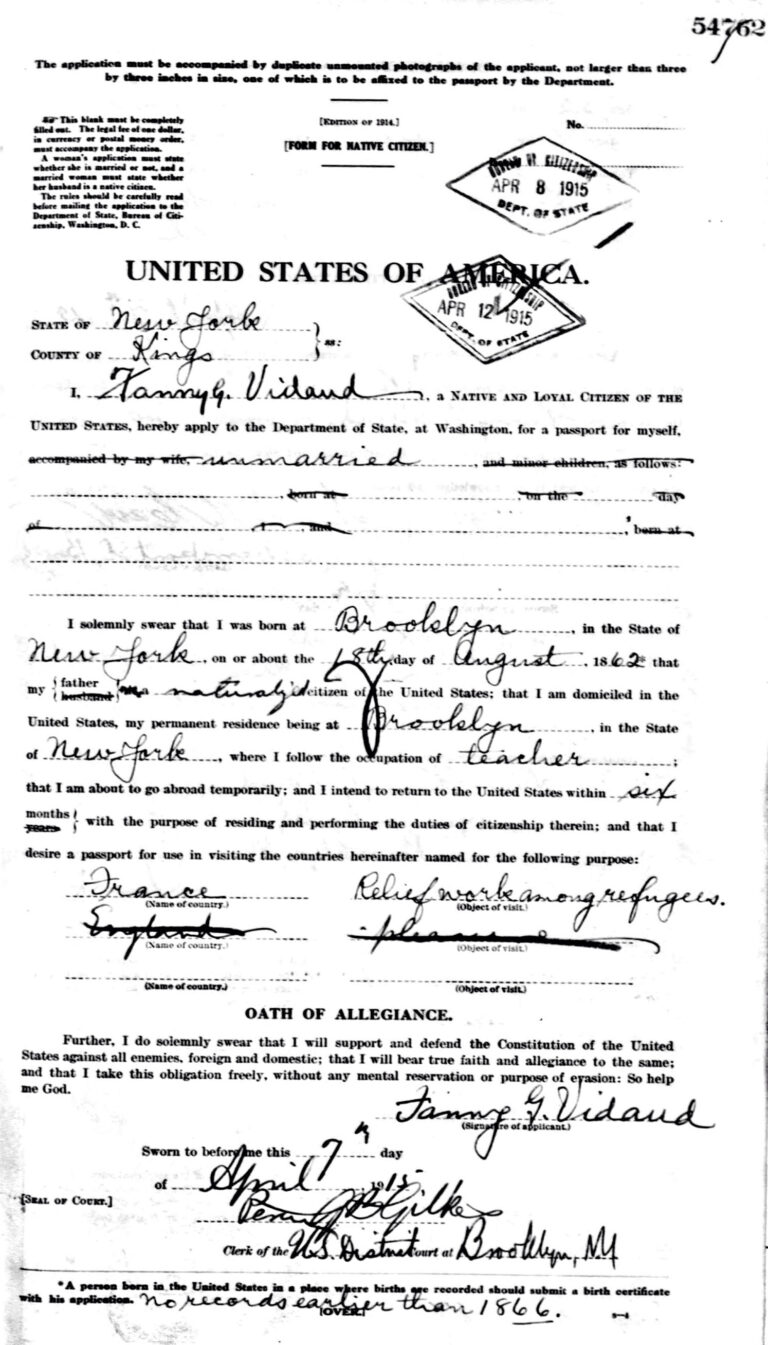 54762
The application must be accompanied by duplicate unmounted photographs of the applicant, not larger than three
by three inches in size, one of which is to be affixed to the passport by the Department.
This blank must be completely
filled out. The legal fee of one dollar,
in currency or postal money order,
must accompany the application.
A woman's application must state
whether she is married or not, and a
married woman must state whether
her husband is a native citizen.
The rules should be carefully read
before mailing the application to the
Department of State, Bureau of Citi-
zenship, Washington, D. C.
[EDITION OF 1914.]
[FORM FOR NATIVE CITIZEN.]
No.
BUREAU OF CITIZENSHIP
APR 8 1915
DEPT. OF STATE
UNITED STATES OF AMERICA.
BUREAU OF CITIZENSHIP
APR 12 1915
DEPT. OF STATE
STATE OF New York
COUNTY OF Kings
ss:
I, Fanny G. Vidaud, a NATIVE AND LOYAL CITIZEN OF THE
UNITED STATES, hereby apply to the Department of State, at Washington, for a passport for myself,
accompanied by my wife, unmarried, and minor children, as follows:
, born at on the day
of , and , born at
I solemnly swear that I was born at Brooklyn, in the State of
New York, on or about the 18th day of August, 1862 that
my {father husband} a naturalized citizen of the United States; that I am domiciled in the
United States, my permanent residence being at Brooklyn, in the State
of New York, where I follow the occupation of teacher;
that I am about to go abroad temporarily; and I intend to return to the United States within six
{months years} with the purpose of residing and performing the duties of citizenship therein; and that I
desire a passport for use in visiting the countries hereinafter named for the following purpose:
France Relief work among refugees.
(Name of country.) (Object of visit.)
England pleasure
(Name of country.) (Object of visit.)
(Name of country.) (Object of visit.)
OATH OF ALLEGIANCE.
Further, I do solemnly swear that I will support and defend the Constitution of the United
States against all enemies, foreign and domestic; that I will bear true faith and allegiance to the same;
and that I take this obligation freely, without any mental reservation or purpose of evasion: So help
me God.
Fanny G. Vidaud
(Signature of applicant.)
Sworn to before me this 7th day
of April 1915
[SEAL OF COURT.]
Percy G B Gilkes
Clerk of the U.S. District Court at Brooklyn, NY
*A person born in the United States in a place where births are recorded should submit a birth certificate
with his application. No records earlier than 1866.
[OVER.]